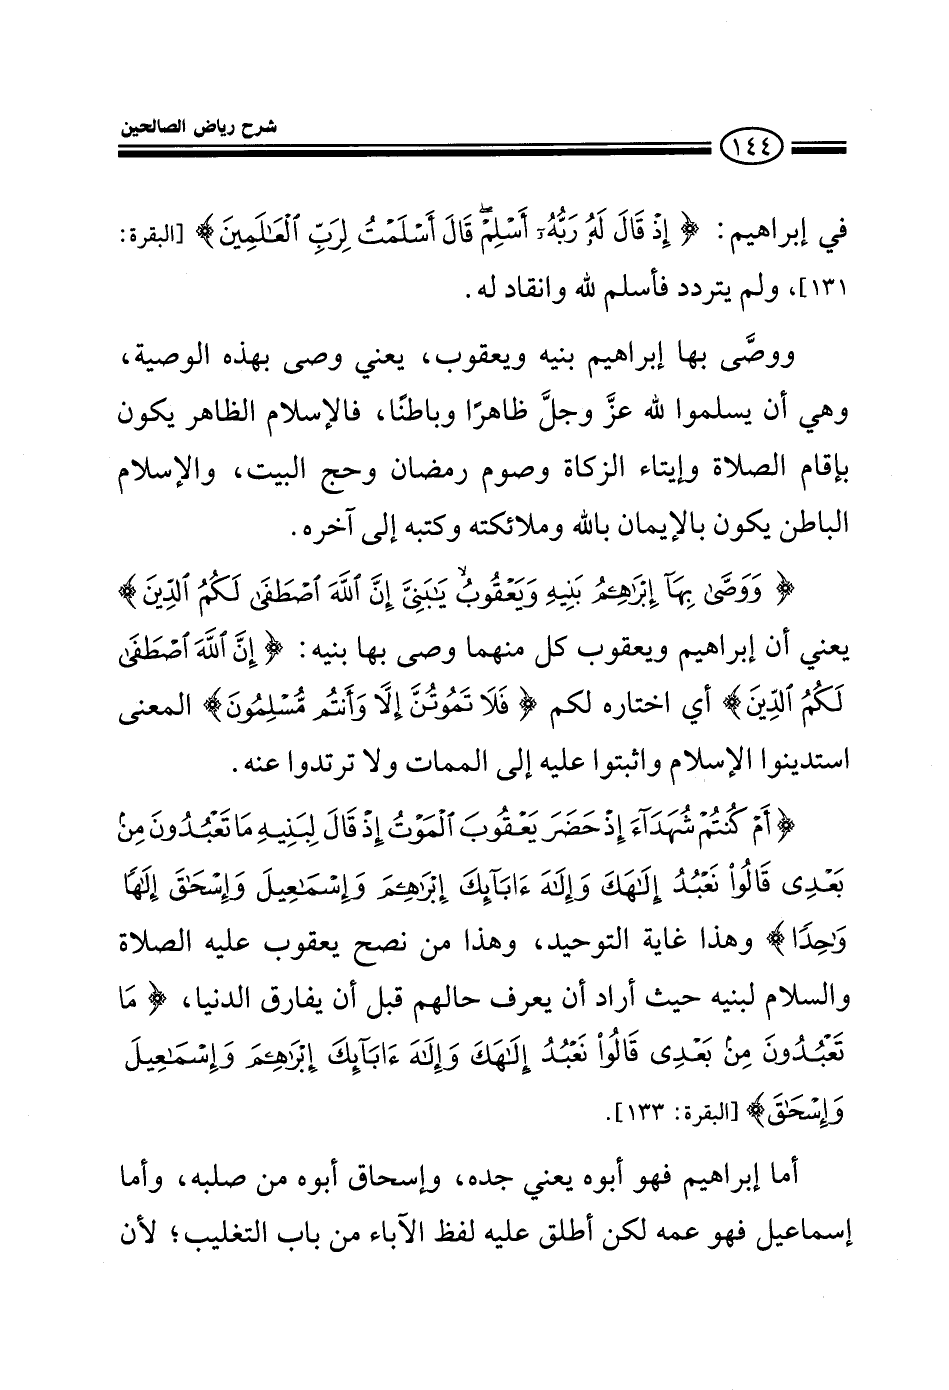 شرح رياض الصالحين
١٤٤
في إبراهيم: ﴿ إِذْ قَالَ لَهُۥ رَبُّهُۥٓ أَسْلِمْۖ قَالَ أَسْلَمْتُ لِرَبِّ ٱلْعَٰلَمِينَ﴾ [البقرة:
١٣١]، ولم يتردد فأسلم لله وانقاد له.
ووصَّى بها إبراهيم بنيه ويعقوب، يعني وصى بهذه الوصية،
وهي أن يسلموا لله عزَّ وجلَّ ظاهرًا وباطنًا، فالإسلام الظاهر يكون
بإقام الصلاة وإيتاء الزكاة وصوم رمضان وحج البيت، والإسلام
الباطن يكون بالإيمان بالله وملائكته وكتبه إلى آخره.
﴿ وَوَصَّىٰ بِهَآ إِبْرَٰهِـۧمُ بَنِيهِ وَيَعْقُوبُۙ يَٰبَنِىَّ إِنَّ ٱللَّهَ ٱصْطَفَىٰ لَكُمُ ٱلدِّينَ ﴾
يعني أن إبراهيم ويعقوب كل منهما وصى بها بنيه: ﴿ إِنَّ ٱللَّهَ ٱصْطَفَىٰ
لَكُمُ ٱلدِّينَ﴾ أي اختاره لكم ﴿ فَلَا تَمُوتُنَّ إِلَّا وَأَنتُم مُّسْلِمُونَ﴾ المعنى
استدينوا الإسلام واثبتوا عليه إلى الممات ولا ترتدوا عنه.
﴿أَمْ كُنتُمْ شُهَدَآءَ إِذْ حَضَرَ يَعْقُوبَ ٱلْمَوْتُ إِذْ قَالَ لِبَنِيهِ مَا تَعْبُدُونَ مِنۢ
بَعْدِى قَالُوا۟ نَعْبُدُ إِلَٰهَكَ وَإِلَٰهَ ءَابَآئِكَ إِبْرَٰهِـۧمَ وَإِسْمَٰعِيلَ وَإِسْحَٰقَ إِلَٰهًا
وَٰحِدًا﴾ وهذا غاية التوحيد، وهذا من نصح يعقوب عليه الصلاة
والسلام لبنيه حيث أراد أن يعرف حالهم قبل أن يفارق الدنيا، ﴿ مَا
تَعْبُدُونَ مِنۢ بَعْدِى قَالُوا۟ نَعْبُدُ إِلَٰهَكَ وَإِلَٰهَ ءَابَآئِكَ إِبْرَٰهِـۧمَ وَإِسْمَٰعِيلَ
وَإِسْحَٰقَ﴾ [البقرة: ١٣٣].
أما إبراهيم فهو أبوه يعني جده، وإسحاق أبوه من صلبه، وأما
إسماعيل فهو عمه لكن أطلق عليه لفظ الآباء من باب التغليب؛ لأن